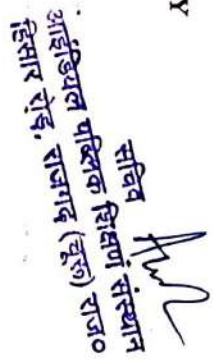 Y
सचिव
आईडियल पब्लिक शिक्षण संस्थान
हिसार रोड़, राजगढ़ (चूरू) राज०